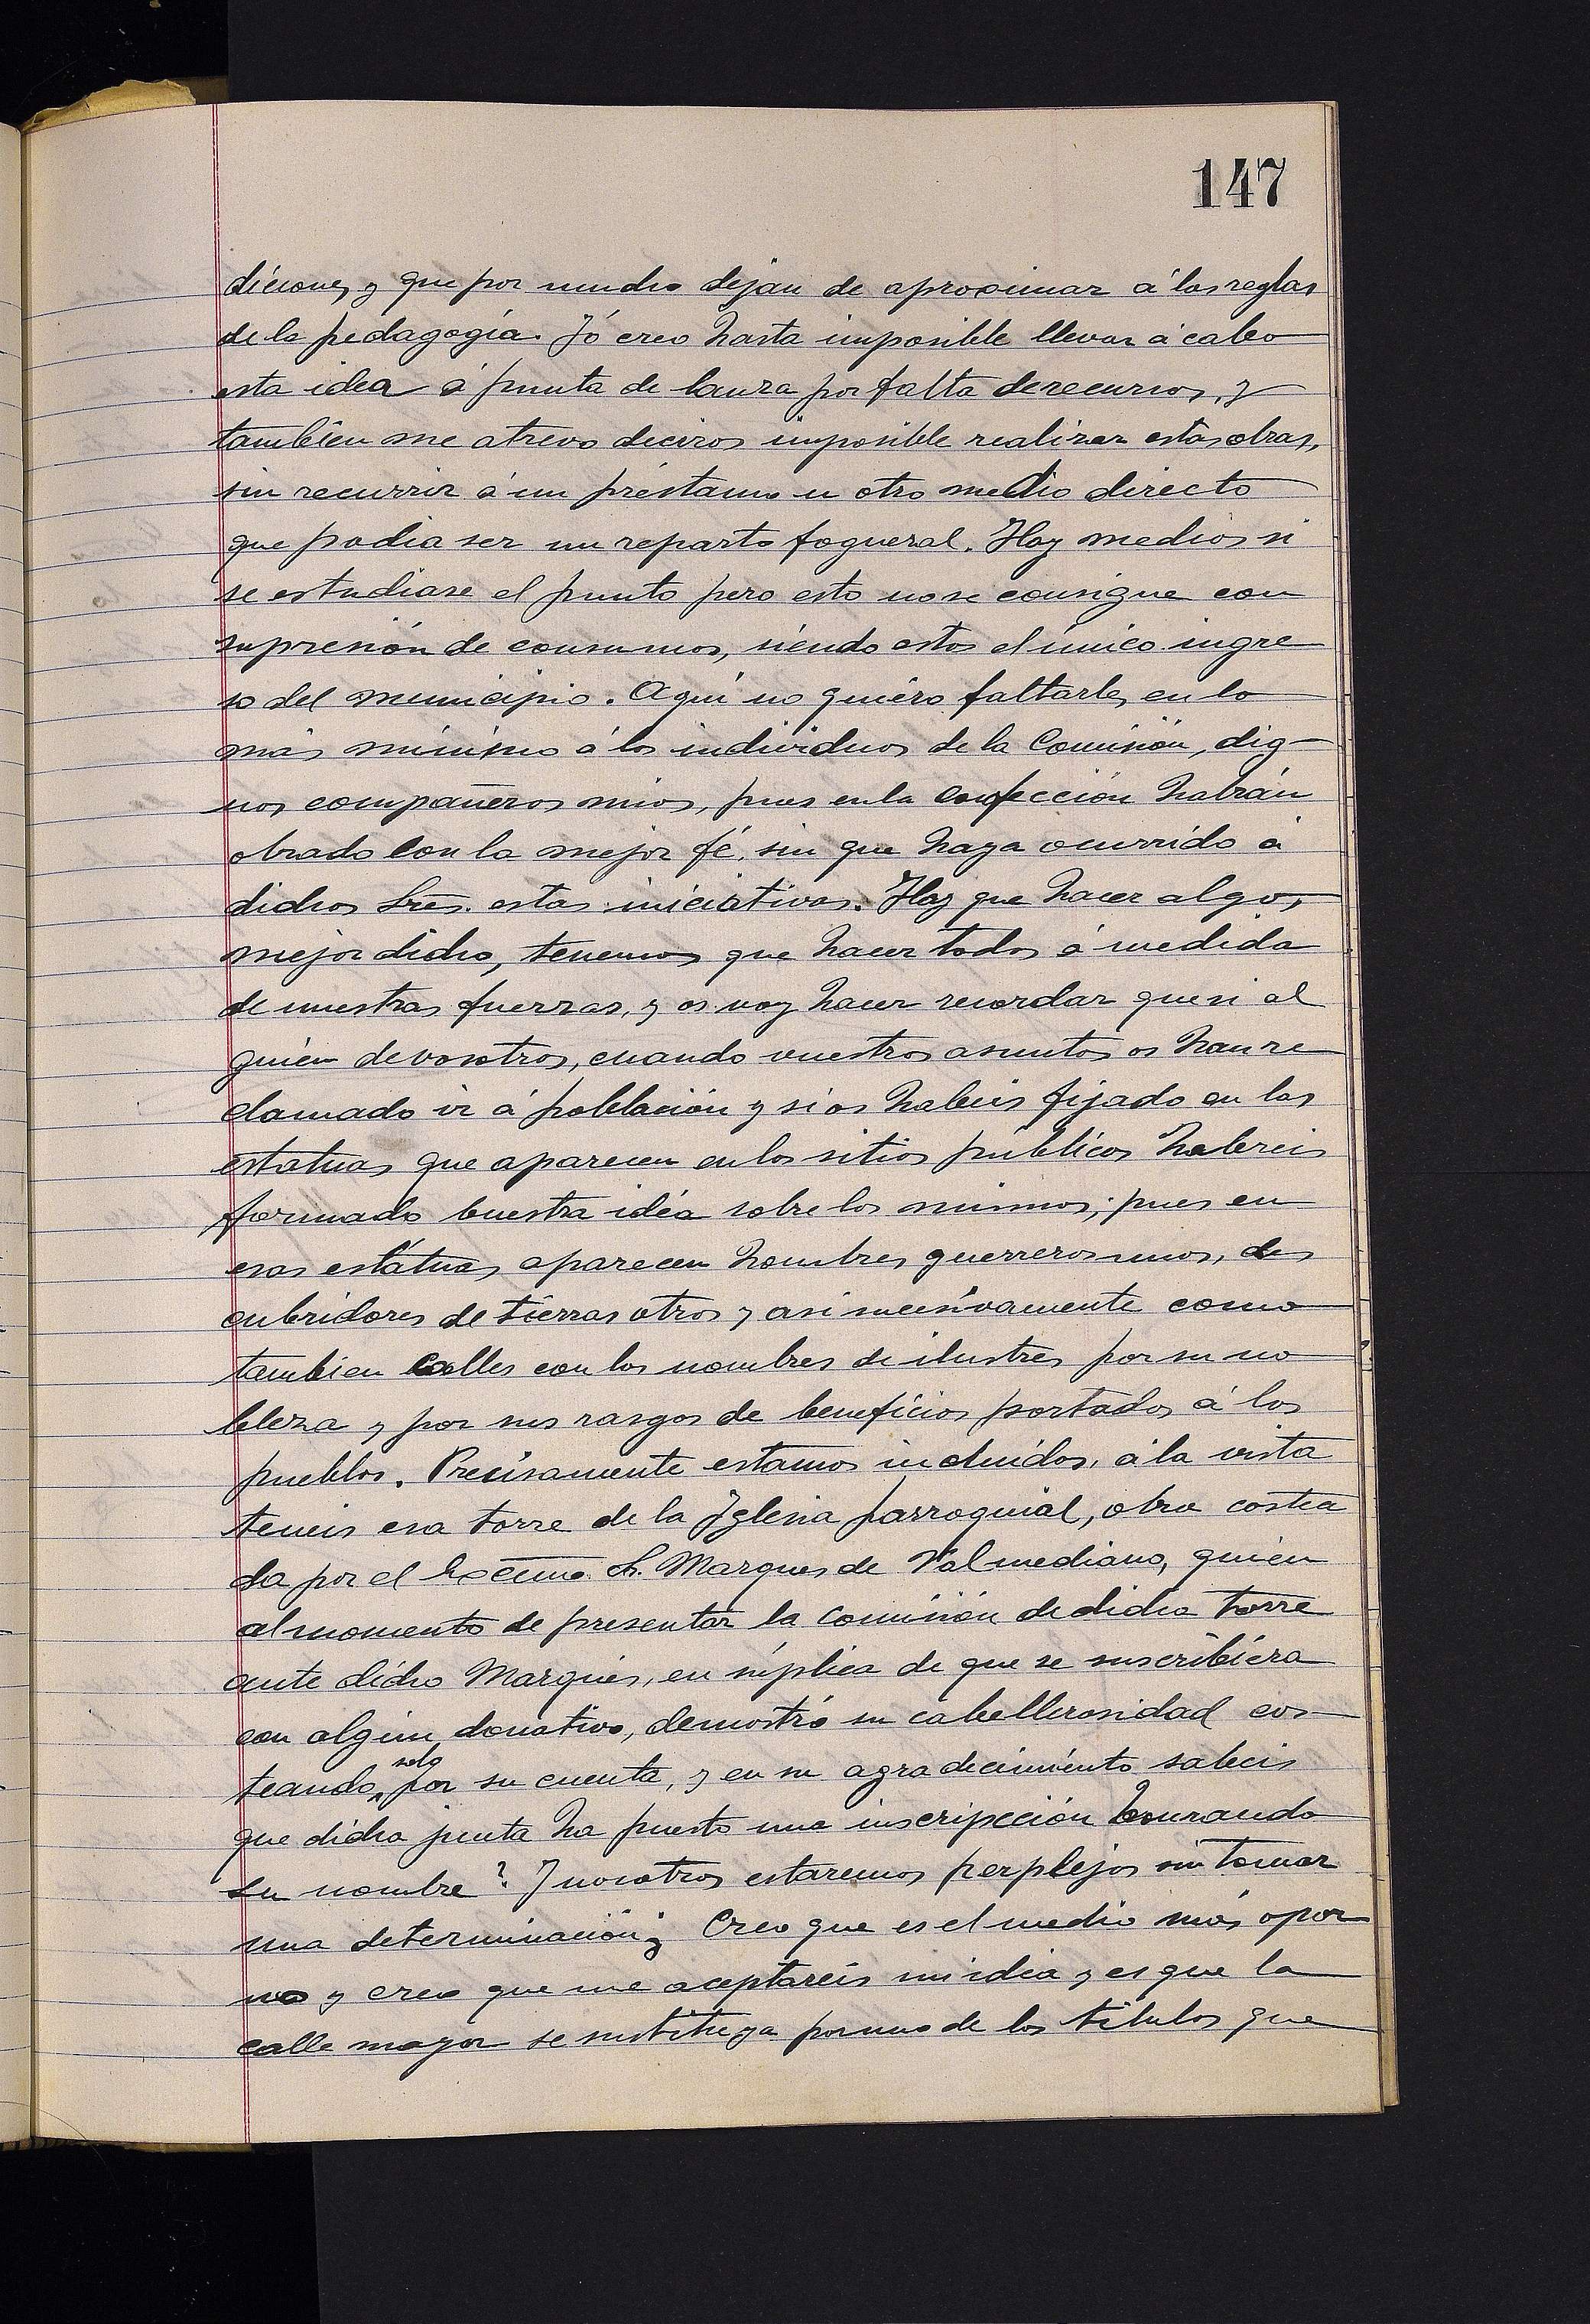 147
diciones y que por mucho dejan de aproximar á las reglas
de la pedagogía. Yó creo hasta imposible llevar á cabo
esta idea á punta de lanza por falta de recursos, y
tambien me atrevo deciros imposible realizar estas obras,
sin recurrir á un préstamo u otro medio directo
que podia ser un reparto fogueral. Hay medios si
se estudiase el punto pero esto no se consigue con
supresión de consumos, siendo estos el único ingre
so del municipio. Aquí no quiero faltarles en lo
más mínimo á los individuos de la Comisión, dig-
nos compañeros mios, pues en la confección habrán
obrado con la mejor fé, sin que haya ocurrido á
dichos Sres. estas iniciativas. Hay que hacer algo,
mejor dicho, tenemos que hacer todos á medida
de nuestras fuerzas, y os voy hacer recordar que si al
guien de vosotros, cuando vuestros asuntos os han re
clamado ir á población y si os habeis fijado en las
estatuas que aparecen en los sitios públicos habreis
formado buestra idéa sobre los mismos; pues en
esas estátuas aparecen hombres guerreros unos, des
cubridores de tierras otros y asi sucesivamente como
tambien calles con los nombres de ilustres por su no
bleza y por sus rasgos de beneficios portados á los
pueblos. Precisamente estamos incluidos, á la vista
teneis esa torre de la Iglesia parroquial, obra costea
da por el Excmo. Sr. Marques de Valmediano, quien
al momento de presentar la comisión de dicha torre
ante dicho Marqués, en súplica de que se suscribiera
con algun donativo, demostró su caballerosidad cos-
teando solo por su cuenta, y en su agradecimiento sabeis
que dicha junta ha puesto una inscripcción honrando
su nombre? Y nosotros estaremos perplejos sin tomar
una determinación; Creo que es el medio más opor
no y creo que me aceptareis mi idea y es que la
calle mayor se sustituya por uno de los titulos que